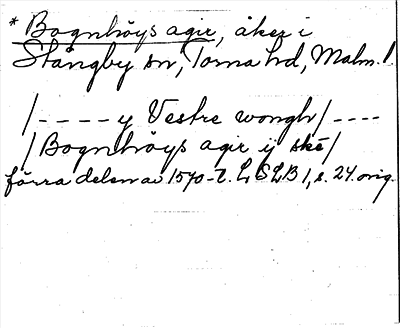 * Bognhöys agir, åker i
Stångby sn, Torna hd, Malm. l.
/---- y Vestre wongh/----
/Bognhöys agir ij skē/
förra delen av 1570-t. LSLB 1, s. 24. orig.